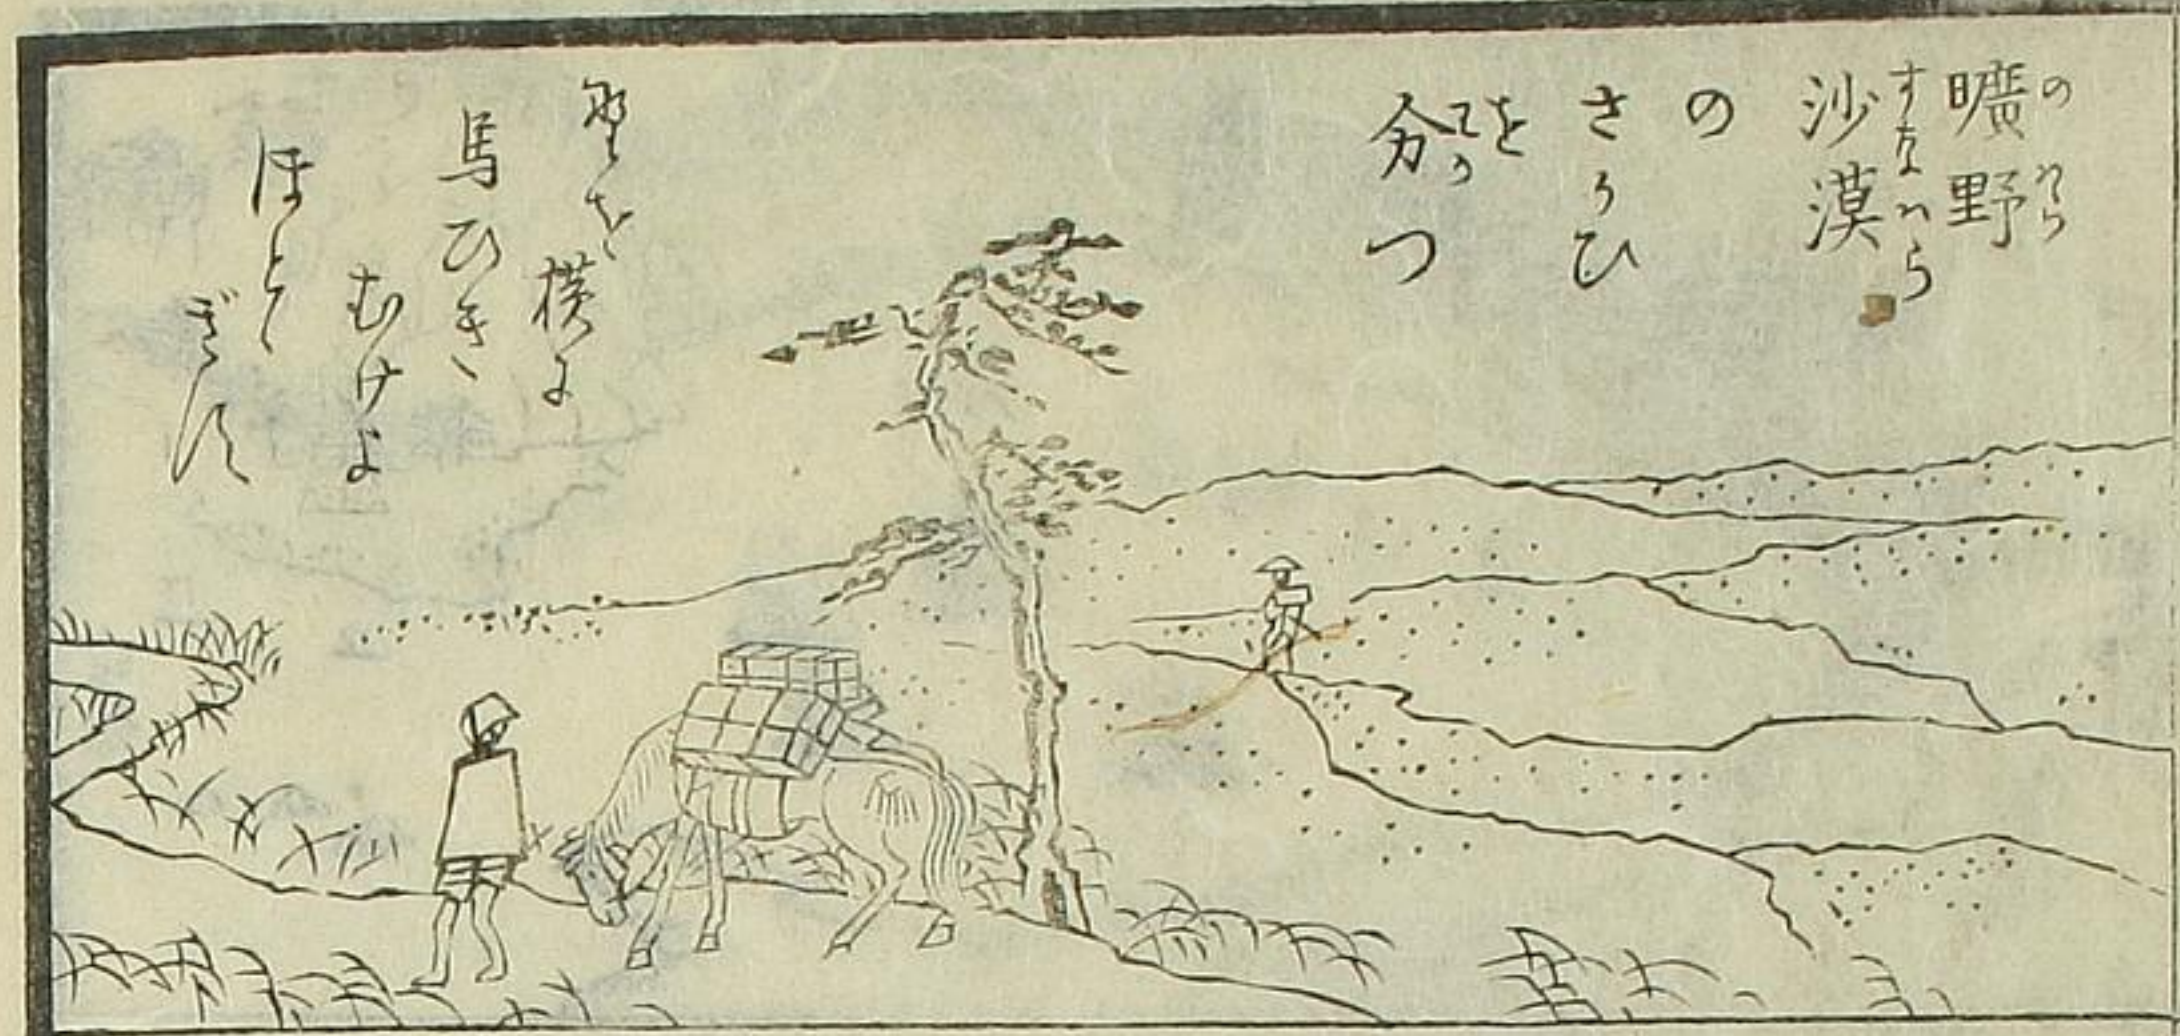 曠野
のはら
沙漠
すなハら
の
さかひ
を
分つ
わか
野を
横に
馬ひき
むけよ
ほとゝ
ぎす